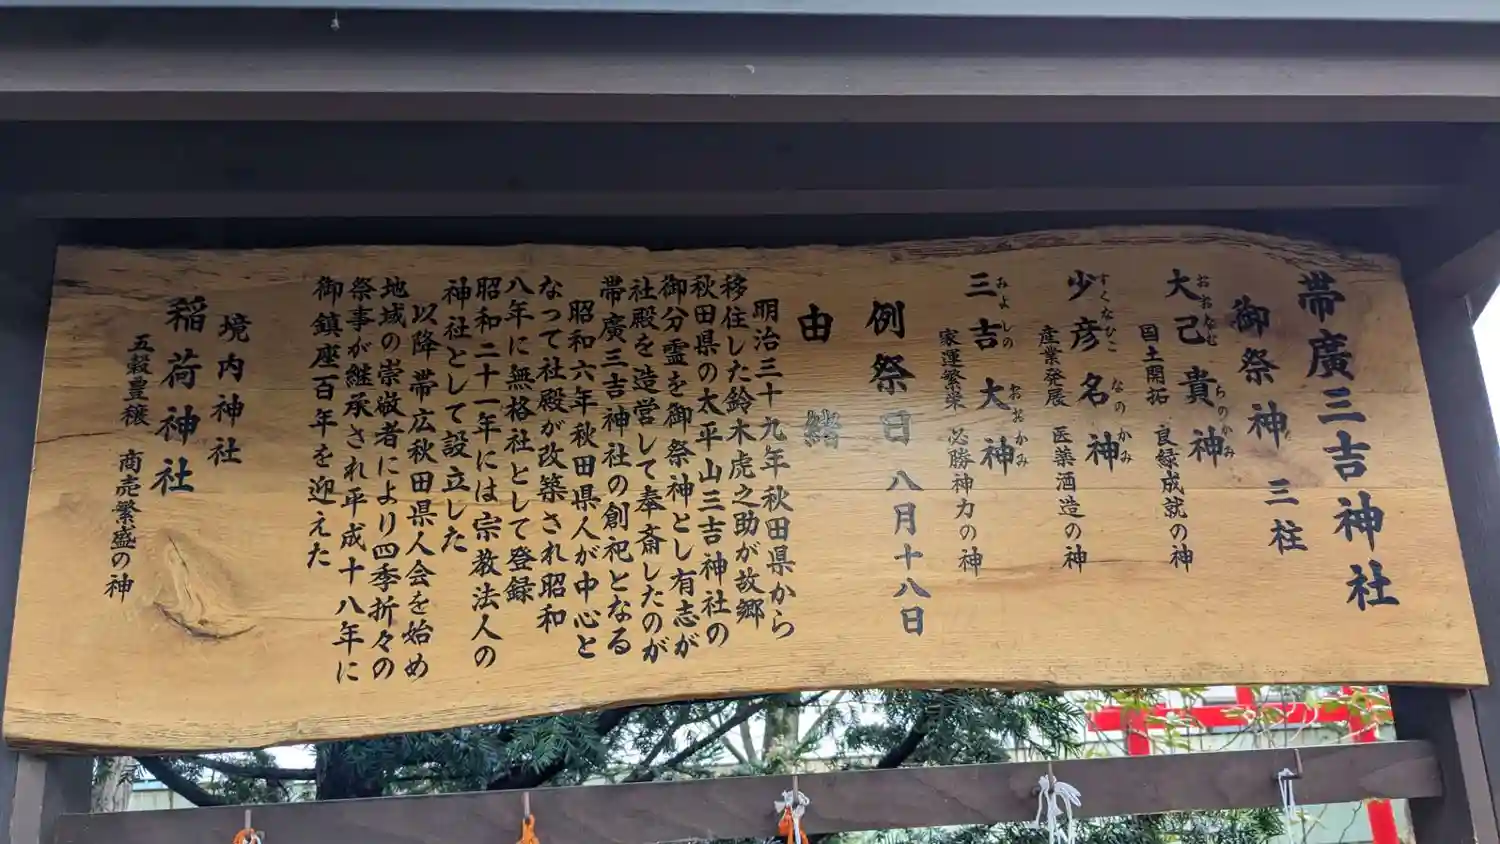 帯廣三吉神社
御祭神 三柱
大己貴神
おおなむちのかみ
国土開拓 良縁成就の神
少彦名神
すくなひこなのかみ
産業発展 医薬酒造の神
三吉大神
みよしのおおかみ
家運繁栄 必勝神力の神
例祭日 八月十八日
由緒
明治三十九年秋田県から
移住した鈴木虎之助が故郷
秋田県の太平山三吉神社の
御分霊を御祭神とし有志が
社殿を造営して奉斎したのが
帯廣三吉神社の創祀となる
昭和六年秋田県人が中心と
なって社殿が改築され昭和
八年に無格社として登録
昭和二十一年には宗教法人の
神社として設立した
以降帯広秋田県人会を始め
地域の崇敬者により四季折々の
祭事が継承され平成十八年に
御鎮座百年を迎えた
境内神社
稲荷神社
五穀豊穣 商売繁盛の神